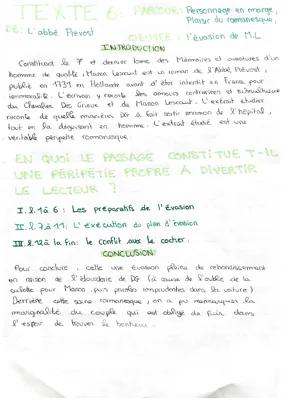 TEXTE 6: PARCOURS: Personnage en marge,
Plaisir du romanesque.
DE: L'abbé Prévost OEUVRE: l'évasion de M.L
INTRODUCTION
Constituant le 7e et dernier tome des Mémoires et aventures d'un
homme de qualité, Manon Lescaut est un roman de l'Abbé Prévost,
publié en 1731 en Hollande avant d'être interdit en France pour
immoralité. L'écrivain y raconte les amours contrariées et tumultueuses
du Chevalier Des Grieux et de Manon Lescaut. L'extrait étudié
raconte de quelle manière DG a fait sortir manon de l'hôpital,
tout en la déguisant en homme. L'extrait étudié est une
véritable péripétie romanesque.
EN QUOI LE PASSAGE CONSTITUE T-IL
UNE PÉRIPÉTIE PROPRE À DIVERTIR
LE LECTEUR ?
I. l. 1 à 6 : Les préparatifs de l'évasion
II. l. 7 à 11: L'exécution du plan d'évasion
III. l. 12 à la fin: le conflit avec le cocher.
CONCLUSION
Pour conclure, cette une évasion pleine de rebondissement
en raison de l'étourderie de DG (à cause de l'oubli de la
culotte pour Manon puis paroles imprudentes dans la voiture)
Derrière cette scène romanesque, on a pu remarquer la
marginalité du couple qui est obligé de fuir dans
l'espoir de trouver le bonheur.